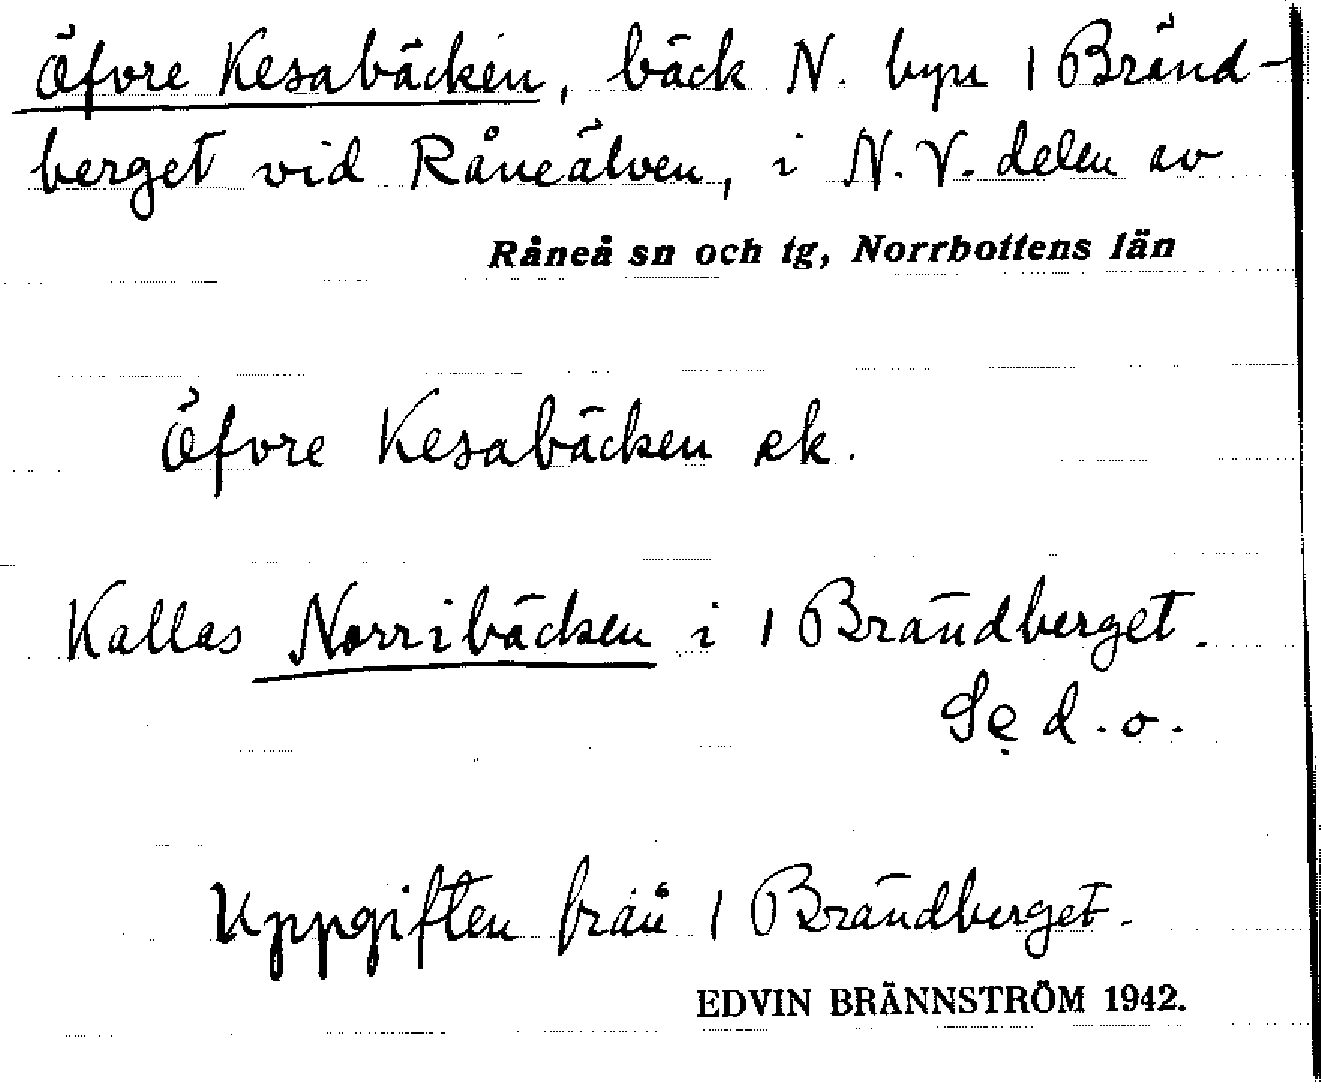 Öfvre Kesabäcken, bäck N. byn 1 Bränd-
berget vid Råneälven, i N.V. delen av
Råneå sn och tg, Norrbottens län
Öfvre Kesabäcken ek.
Kallas Norribäcken i 1 Brändberget.
Se d.o.
Uppgiften från 1 Brändberget.
EDVIN BRÄNNSTRÖM 1942.